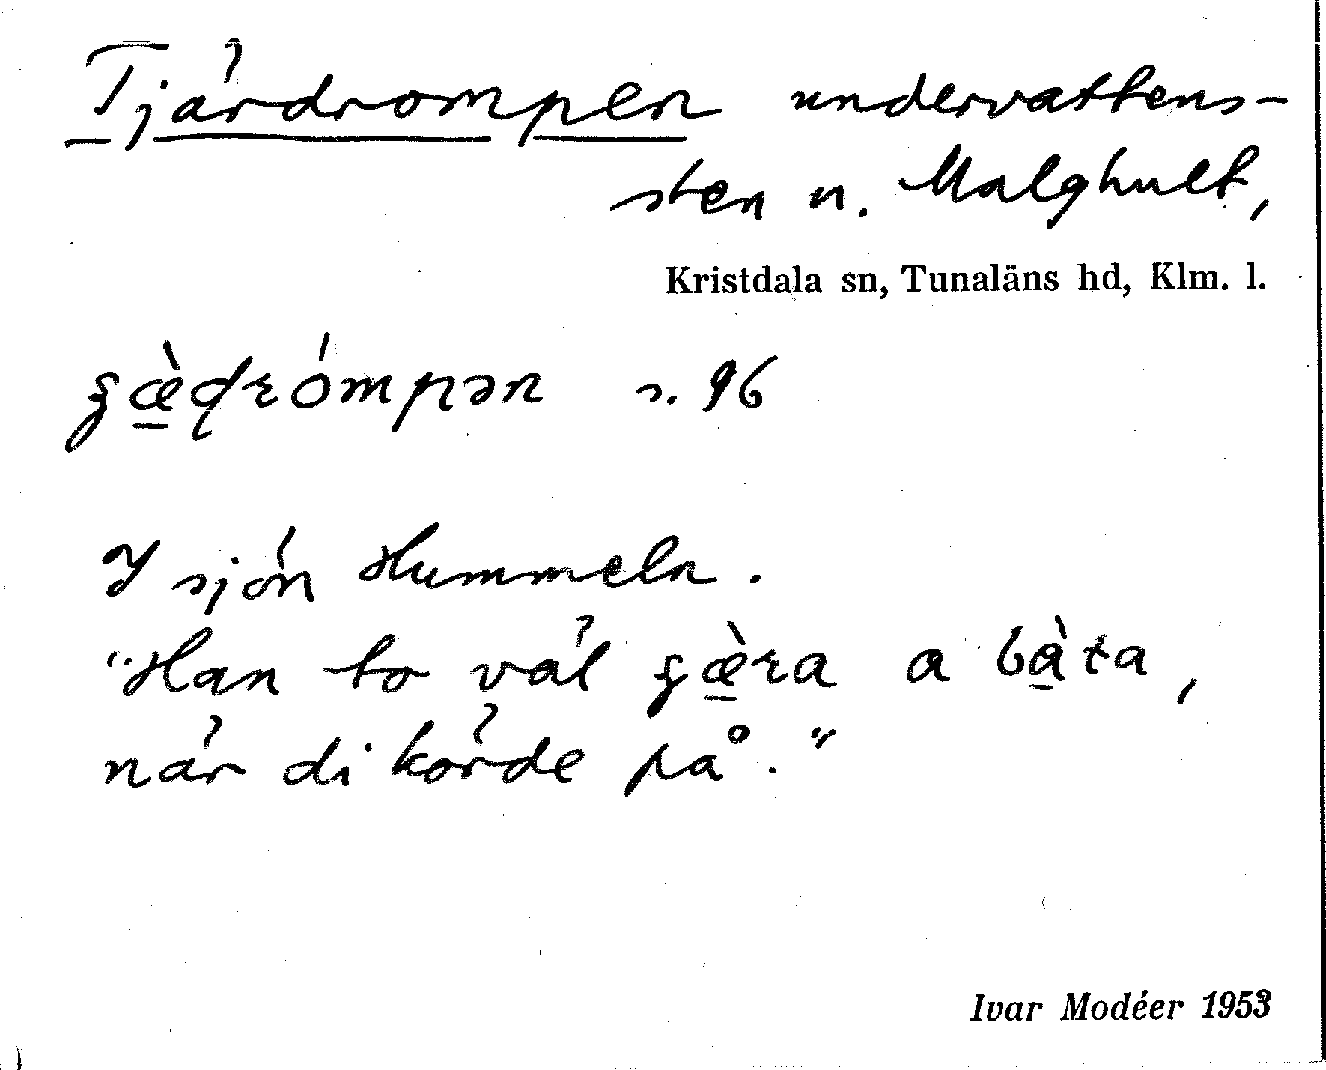 Tjärdrompen undervattens-
sten n. Malghult,
Kristdala sn, Tunaläns hd, Klm. l.
s. 96
I sjön Hummeln.
"Han to väl a
när di körde på."
Ivar Modéer 1953